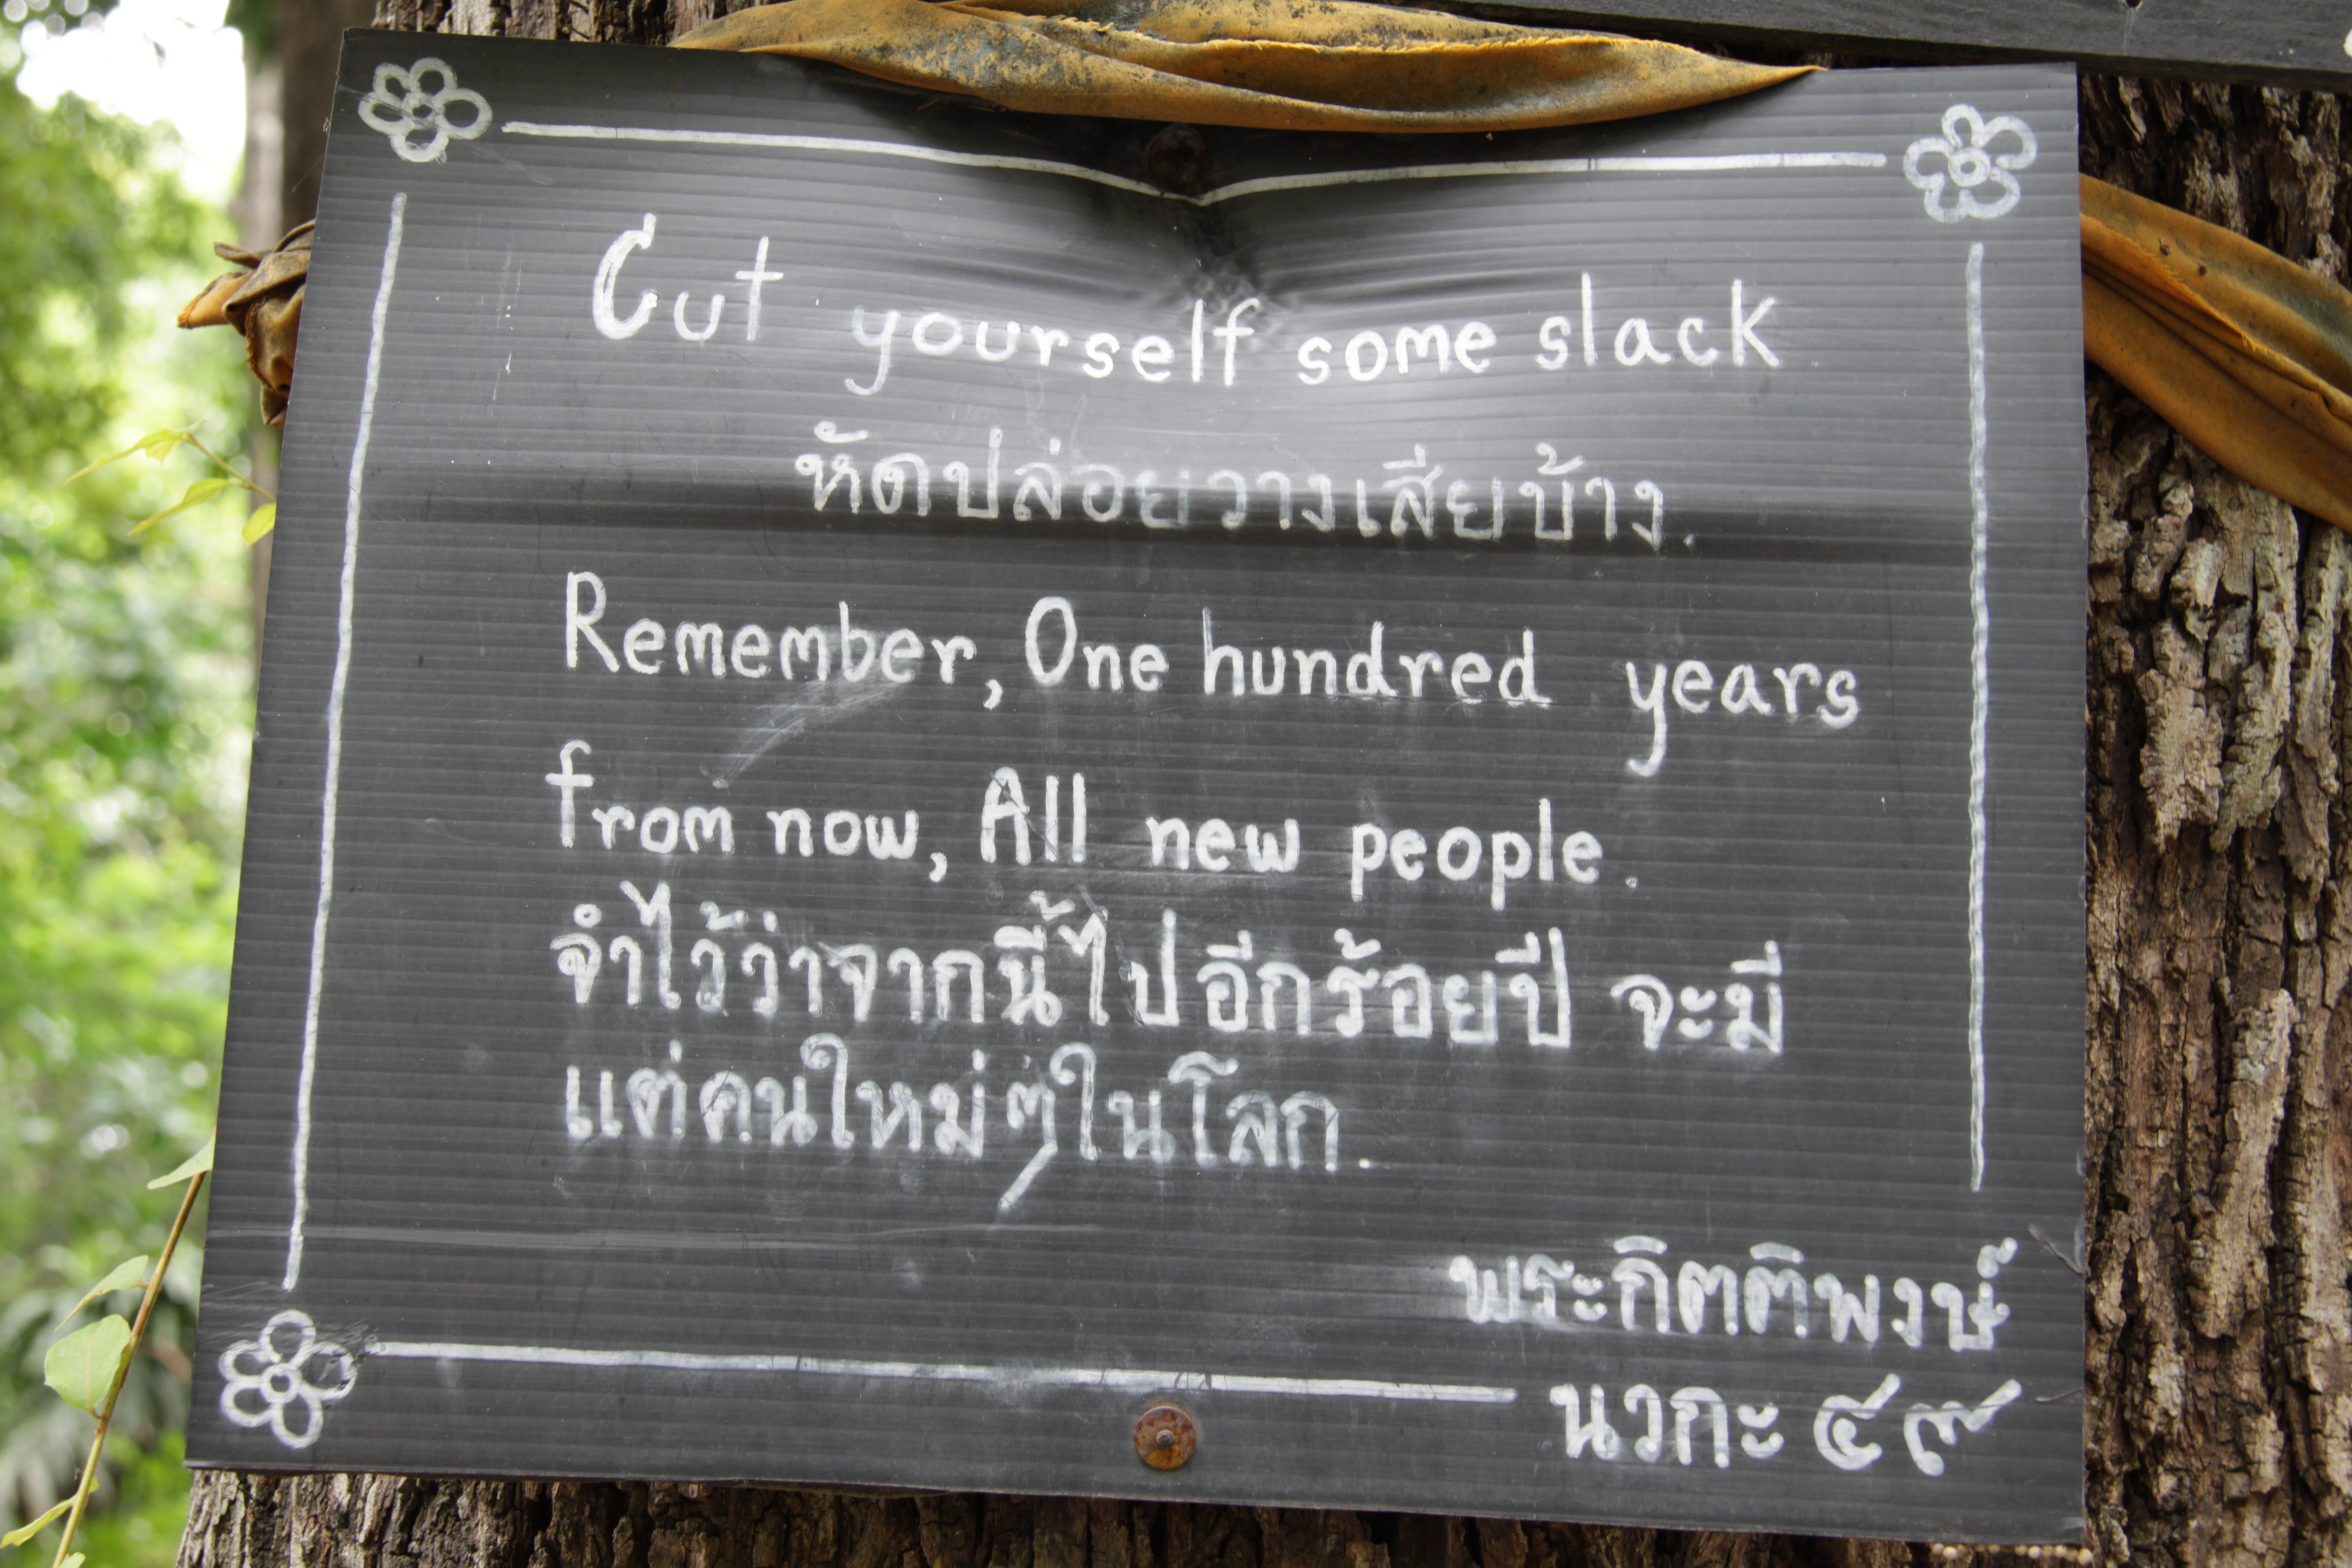 Cut yourself some slack
หัดปล่อยวางเสียบ้าง.
Remember, One hundred years
from now, All new people.
จำไว้ว่าจากนี้ไปอีกร้อยปี จะมี
แต่คนใหม่ๆในโลก.
พระกิตติพงษ์
นวกะ ๔๙